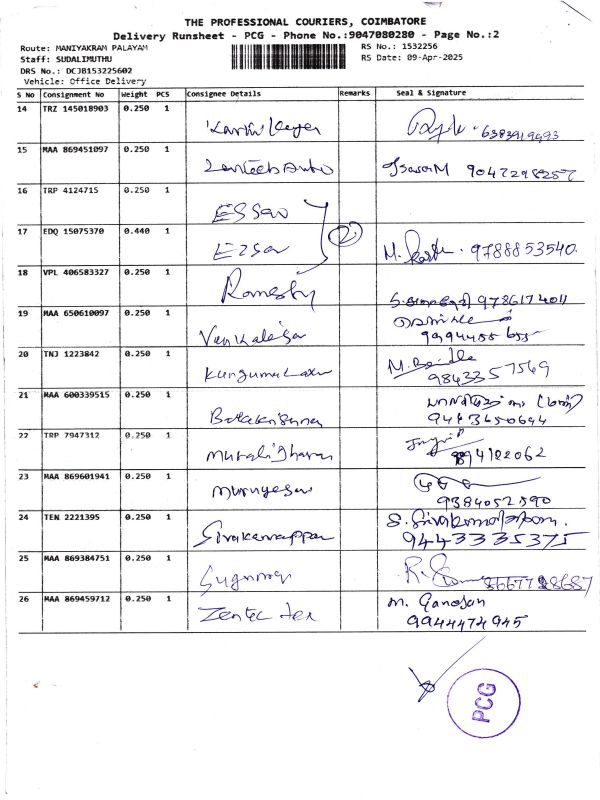 THE PROFESSIONAL COURIERS, COIMBATORE
Delivery Runsheet - PCG - Phone No.:9047080280 - Page No.:2
Route: MANIYAKRAM PALAYAM RS No.: 1532256
Staff: SUDALIMUTHU RS Date: 09-Apr-2025
DRS No.: DCJB153225602
Vehicle: Office Delivery
S No Consignment No Weight PCS Consignee Details Remarks Seal & Signature
14 TRZ 145018903 0.250 1 6383919993
15 MAA 869451097 0.250 1 9047298257
16 TRP 4124715 0.250 1 ESSAV
17 EDQ 15075370 0.440 1 2 9788853540
18 VPL 406583327 0.250 1 Ramesh 9786174011
19 MAA 650610097 0.250 1 Venkatesa 9994455655
20 TNJ 1223842 0.250 1 9843357569
21 MAA 600339515 0.250 1 Balakrishnan 9443650694
22 TRP 7947312 0.250 1 Muralidharan
23 MAA 869601941 0.250 1 Murugesan 9384052590
24 TEN 2221395 0.250 1 Sivakamappan
9443335375
25 MAA 869384751 0.250 1
26 MAA 869459712 0.250 1 Zentec tex m. Ganesan
9944474945
PCG